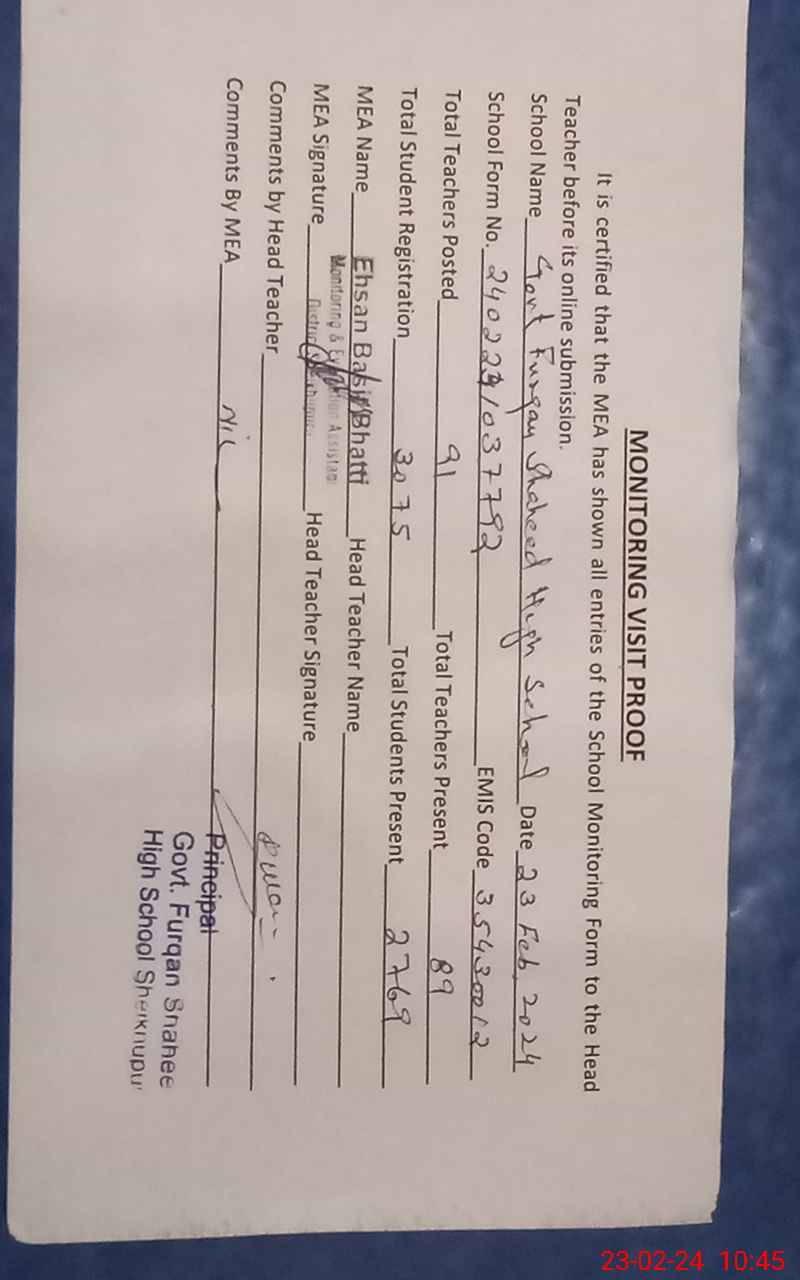 MONITORING VISIT PROOF
It is certified that the MEA has shown all entries of the School Monitoring Form to the Head
Teacher before its online submission.
School Name Govt Furqan Shaheed High School Date 23 Feb, 2024
School Form No. EMIS Code 35430012
Total Teachers Posted 91 Total Teachers Present 89
Total Student Registration 3075 Total Students Present 2769
MEA Name Ehsan Basir Bhatti Head Teacher Name
Monitoring & Assistant
MEA Signature Head Teacher Signature
District
Comments by Head Teacher
Comments By MEA Nil
Principal
Govt. Furqan Shahee
High School Sheikhupu
23-02-24 10:45